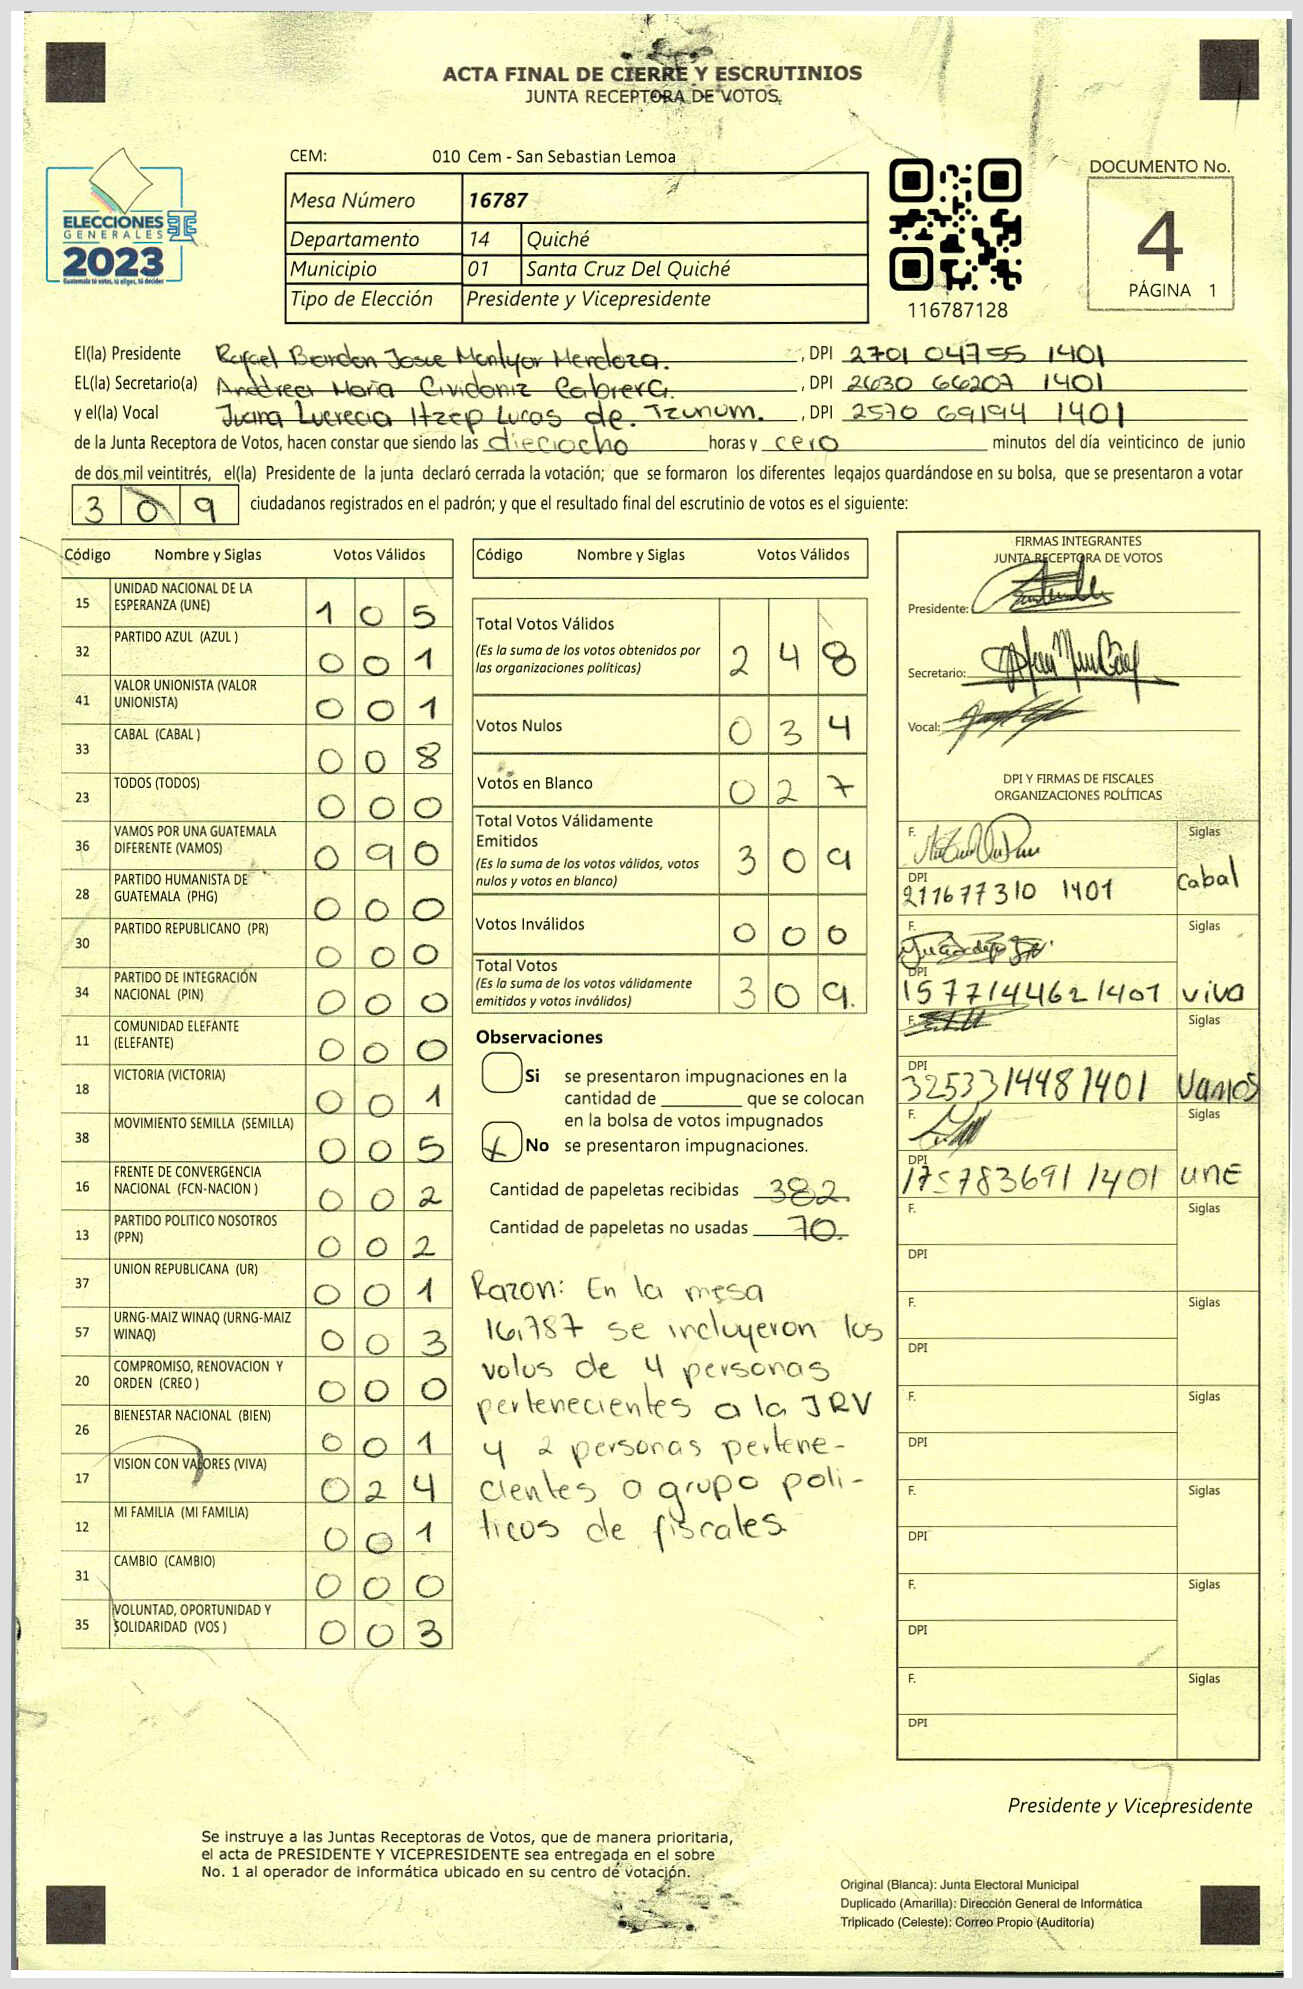 ACTA FINAL DE CIERRE Y ESCRUTINIOS
JUNTA RECEPTORA DE VOTOS
ELECCIONES
GENERALES
2023
Guatemala tú votas, tú eliges, tú decides
CEM: 010 Cem - San Sebastian Lemoa
Mesa Número 16787
Departamento 14 Quiché
Municipio 01 Santa Cruz Del Quiché
Tipo de Elección Presidente y Vicepresidente
116787128
DOCUMENTO No.
4
PÁGINA 1
El(la) Presidente Rafael Brandon Josue Mendoza. , DPI 2701 04755 1401
EL(la) Secretario(a) Andrea María Cividanis Cabrera. , DPI 2630 66207 1401
y el(la) Vocal Juana Lucrecia Itzep Lucas de Tzunum. , DPI 2570 69194 1401
de la Junta Receptora de Votos, hacen constar que siendo las dieciocho horas y cero minutos del día veinticinco de junio
de dos mil veintitrés, el(la) Presidente de la junta declaró cerrada la votación; que se formaron los diferentes legajos guardándose en su bolsa, que se presentaron a votar
3 0 9 ciudadanos registrados en el padrón; y que el resultado final del escrutinio de votos es el siguiente:
Código Nombre y Siglas Votos Válidos
15 UNIDAD NACIONAL DE LA
ESPERANZA (UNE) 1 0 5
32 PARTIDO AZUL (AZUL ) 0 0 1
41 VALOR UNIONISTA (VALOR
UNIONISTA) 0 0 1
33 CABAL (CABAL ) 0 0 8
23 TODOS (TODOS) 0 0 0
36 VAMOS POR UNA GUATEMALA
DIFERENTE (VAMOS) 0 9 0
28 PARTIDO HUMANISTA DE
GUATEMALA (PHG) 0 0 0
30 PARTIDO REPUBLICANO (PR) 0 0 0
34 PARTIDO DE INTEGRACIÓN
NACIONAL (PIN) 0 0 0
11 COMUNIDAD ELEFANTE
(ELEFANTE) 0 0 0
18 VICTORIA (VICTORIA) 0 0 1
38 MOVIMIENTO SEMILLA (SEMILLA) 0 0 5
16 FRENTE DE CONVERGENCIA
NACIONAL (FCN-NACION ) 0 0 2
13 PARTIDO POLITICO NOSOTROS
(PPN) 0 0 2
37 UNION REPUBLICANA (UR) 0 0 1
57 URNG-MAIZ WINAQ (URNG-MAIZ
WINAQ) 0 0 3
20 COMPROMISO, RENOVACION Y
ORDEN (CREO ) 0 0 0
26 BIENESTAR NACIONAL (BIEN) 0 0 1
17 VISION CON VALORES (VIVA) 0 2 4
12 MI FAMILIA (MI FAMILIA) 0 0 1
31 CAMBIO (CAMBIO) 0 0 0
35 VOLUNTAD, OPORTUNIDAD Y
SOLIDARIDAD (VOS ) 0 0 3
Código Nombre y Siglas Votos Válidos
Total Votos Válidos
(Es la suma de los votos obtenidos por
las organizaciones políticas) 2 4 8
Votos Nulos 0 3 4
Votos en Blanco 0 2 7
Total Votos Válidamente
Emitidos
(Es la suma de los votos válidos, votos
nulos y votos en blanco) 3 0 9
Votos Inválidos 0 0 0
Total Votos
(Es la suma de los votos válidamente
emitidos y votos inválidos) 3 0 9.
Observaciones
Si se presentaron impugnaciones en la
cantidad de ________ que se colocan
en la bolsa de votos impugnados
X No se presentaron impugnaciones.
Cantidad de papeletas recibidas 382.
Cantidad de papeletas no usadas 70.
Razon: En la mesa
16,787 se incluyeron los
votos de 4 personas
pertenecientes a la JRV
y 2 personas pertene-
cientes a grupo poli-
ticos de fiscales
FIRMAS INTEGRANTES
JUNTA RECEPTORA DE VOTOS
Presidente:
Secretario:
Vocal:
DPI Y FIRMAS DE FISCALES
ORGANIZACIONES POLÍTICAS
F. Siglas
DPI 211677310 1401 Cabal
F. Siglas
DPI 1577144621401 viva
F. Siglas
DPI 3253314481401 Vamos
F. Siglas
DPI 175783691 1401 UNE
F. Siglas
DPI
F. Siglas
DPI
F. Siglas
DPI
F. Siglas
DPI
F. Siglas
DPI
F. Siglas
DPI
Presidente y Vicepresidente
Se instruye a las Juntas Receptoras de Votos, que de manera prioritaria,
el acta de PRESIDENTE Y VICEPRESIDENTE sea entregada en el sobre
No. 1 al operador de informática ubicado en su centro de votación.
Original (Blanca): Junta Electoral Municipal
Duplicado (Amarilla): Dirección General de Informática
Triplicado (Celeste): Correo Propio (Auditoría)